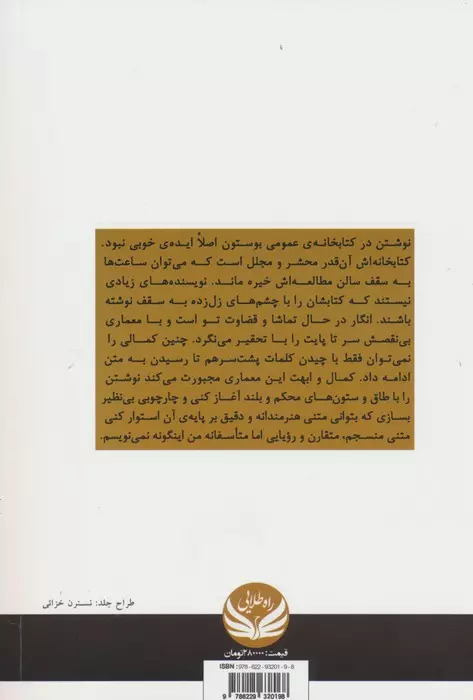 نوشتن در کتابخانه‌ی عمومی بوستون اصلاً ایده‌ی خوبی نبود.
کتابخانه‌اش آن‌قدر محشر و مجلل است که می‌توان ساعت‌ها
به سقف سالن مطالعه‌اش خیره ماند. نویسنده‌های زیادی
نیستند که کتابشان را با چشم‌های زل‌زده به سقف نوشته
باشند. انگار در حال تماشا و قضاوت تو است و با معماری
بی‌نقصش سر تا پایت را با تحقیر می‌نگرد. چنین کمالی را
نمی‌توان فقط با چیدن کلمات پشت‌سرهم تا رسیدن به متن
ادامه داد. کمال و ابهت این معماری مجبورت می‌کند نوشتن
را با طاق و ستون‌های محکم و بلند آغاز کنی و چارچوبی بی‌نظیر
بسازی که بتوانی متنی هنرمندانه و دقیق بر پایه‌ی آن استوار کنی
متنی منسجم، متقارن و رؤیایی اما متأسفانه من اینگونه نمی‌نویسم.
راه طلایی
طراح جلد: نسترن خزائی
قیمت: ۲۸۰۰۰۰ تومان
ISBN: 978-622-93201-9-8
9 786229 320198